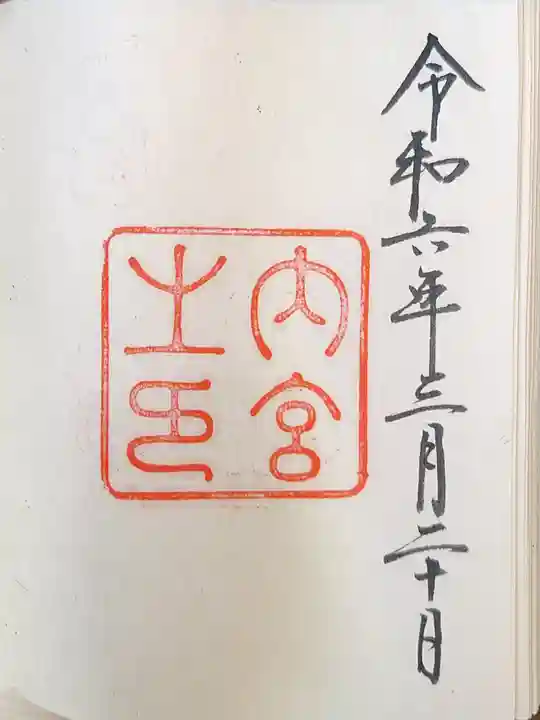 令和六年三月二十日
内宮
之印